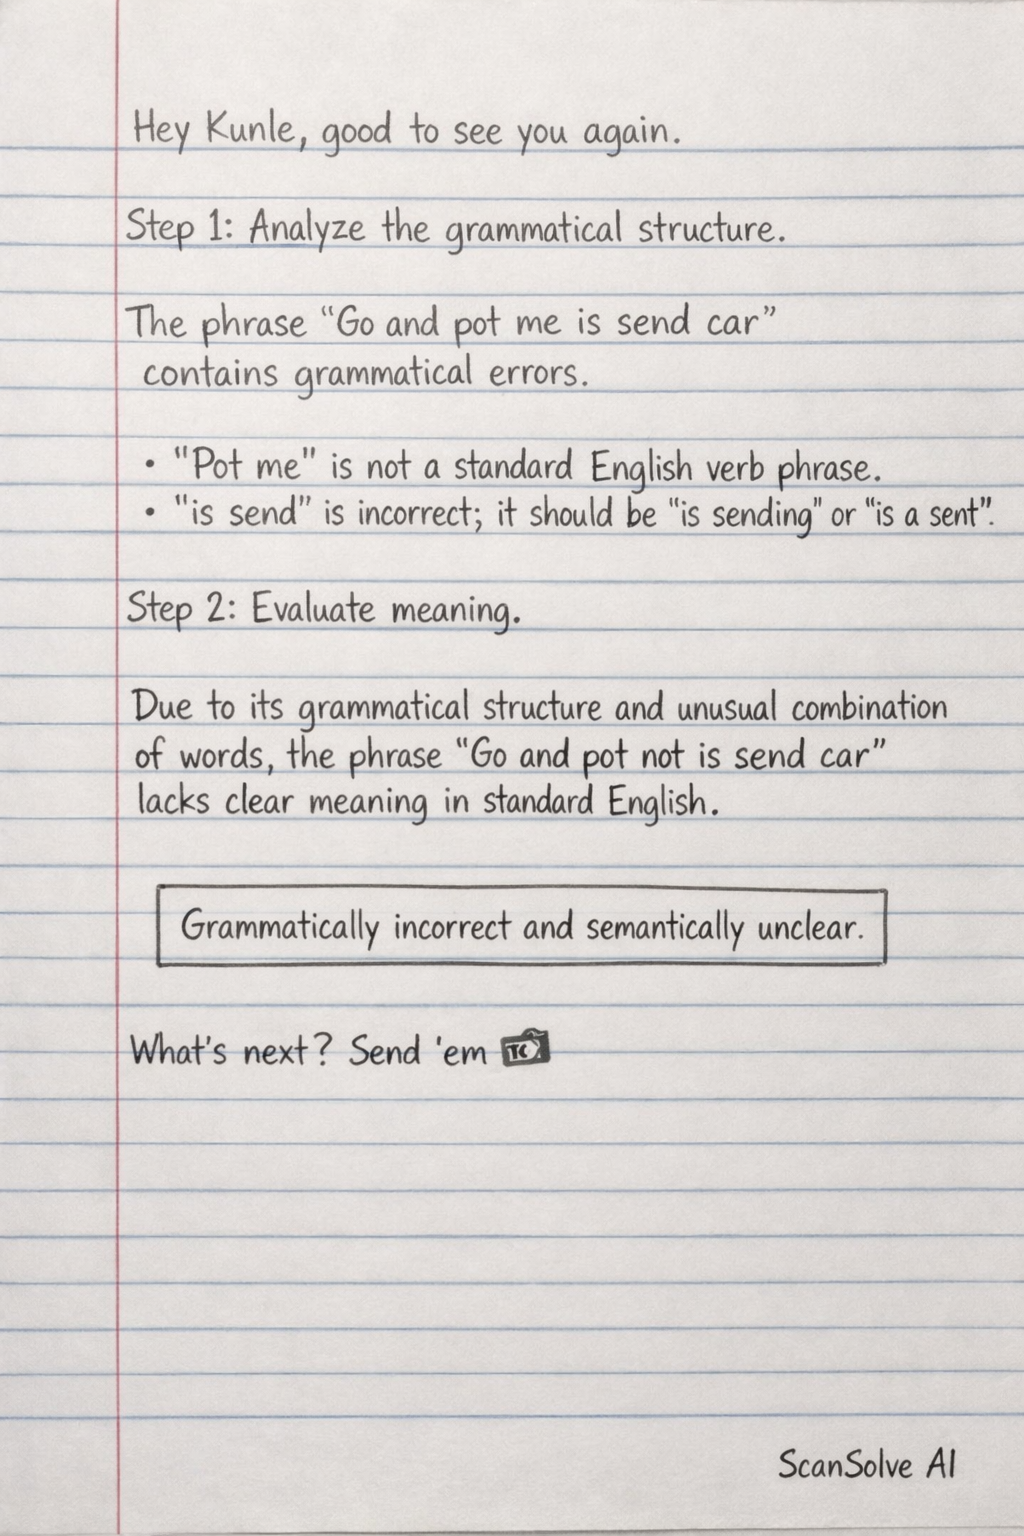 Hey Kunle, good to see you again.
Step 1: Analyze the grammatical structure.
The phrase “Go and pot me is send car”
contains grammatical errors.
• "Pot me" is not a standard English verb phrase.
• "is send" is incorrect; it should be "is sending" or "is a sent".
Step 2: Evaluate meaning.
Due to its grammatical structure and unusual combination
of words, the phrase “Go and pot not is send car”
lacks clear meaning in standard English.
Grammatically incorrect and semantically unclear.
What's next? Send 'em
ScanSolve AI